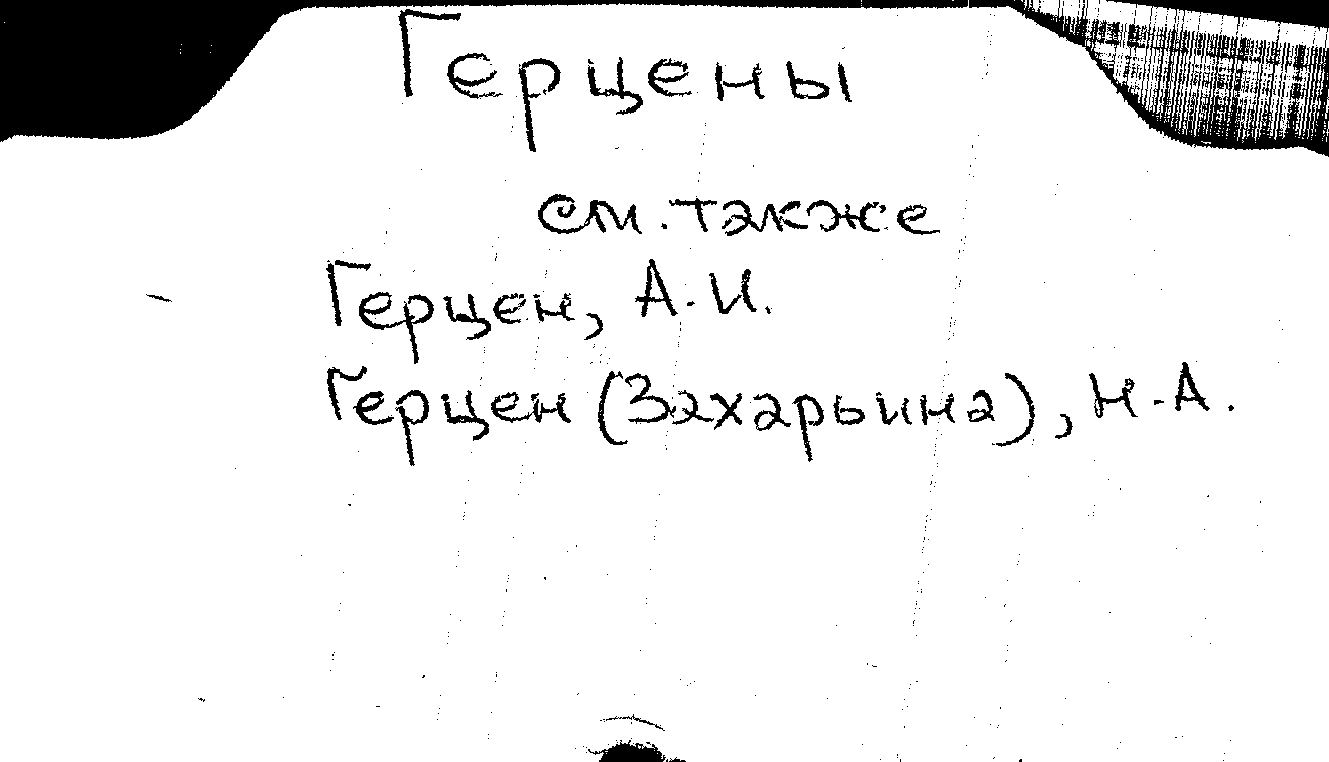 Герцены
см. также
Герцен, А.И.
Герцен (Захарьина), Н.А.